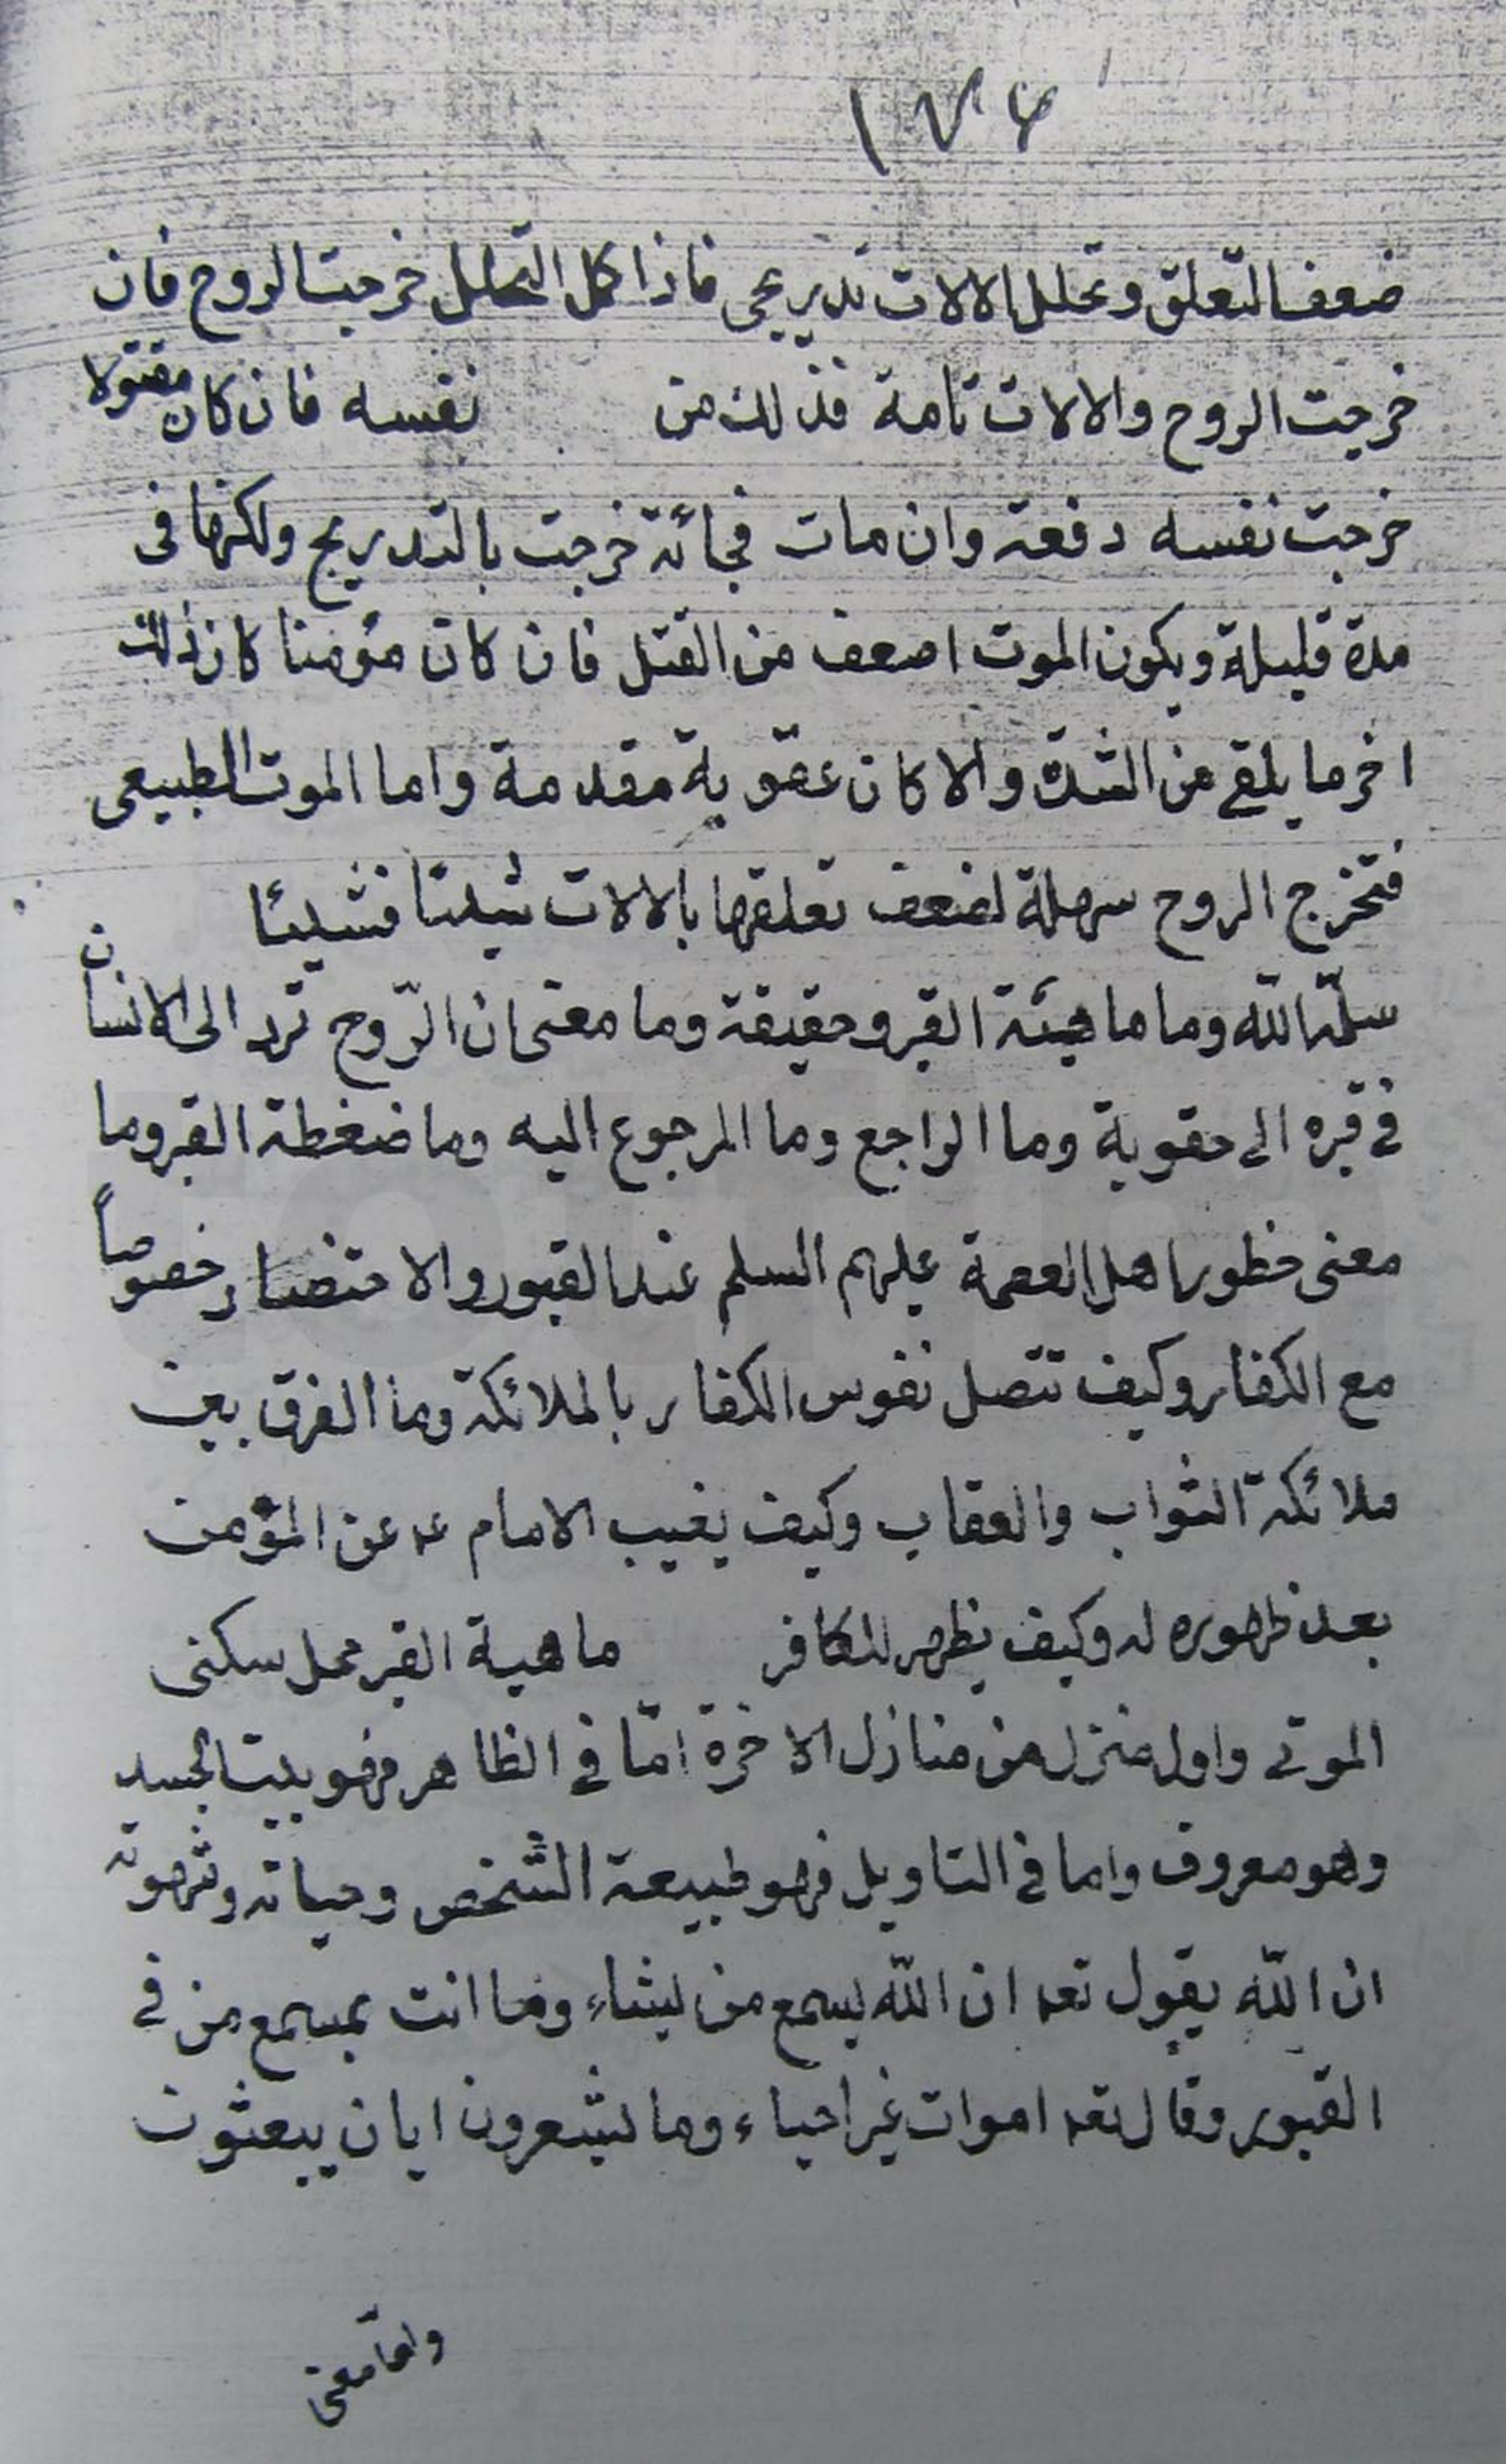 ١٧٤
ضعف التعلق وتحلل الالات تدريجي فاذا كمل التحلل خرجت الروح فان
خرجت الروح والالات تامة فذلك من نفسه فان كان مقتولا
خرجت نفسه دفعة وان مات فجائة خرجت بالتدريج ولكنها في
مدة قليلة ويكون الموت اصعف من القتل فان كان مؤمنا كان ذلك
اخر ما يلقى من الشدة والا كان عقوبة مقدمة واما الموت الطبيعي
فتخرج الروح سهلة لضعف تعلقها بالالات شيئا فشيئا
سلمه الله وما ماهيئة القبر وحقيقة وما معنى ان الرّوح ترد الى الانسان
في قبره الى حقوية وما الراجع وما المرجوع اليه وما ضغطة القبر وما
معنى حظور اهل العصمة عليهم السلم عند القبور والاحتضار خصوصاً
مع الكفار وكيف تتصل نفوس الكفار بالملائكة وما الفرق بين
ملائكة الثواب والعقاب وكيف يغيب الامام عه عن المؤمن
بعد ظهوره له وكيف يظهر للكافر ماهية القبر محل سكنى
الموتى واول منزل من منازل الاخرة امّا في الظاهر فهو بيت الجسد
وهو معروف واما في التاويل فهو طبيعة الشخص وحياته وشهوته
ان الله يقول تعه ان الله يسمع من يشاء وما انت بمسمع من في
القبور وقال تعه اموات غير احياء وما يشعرون ايان يبعثون
وامّا معنى